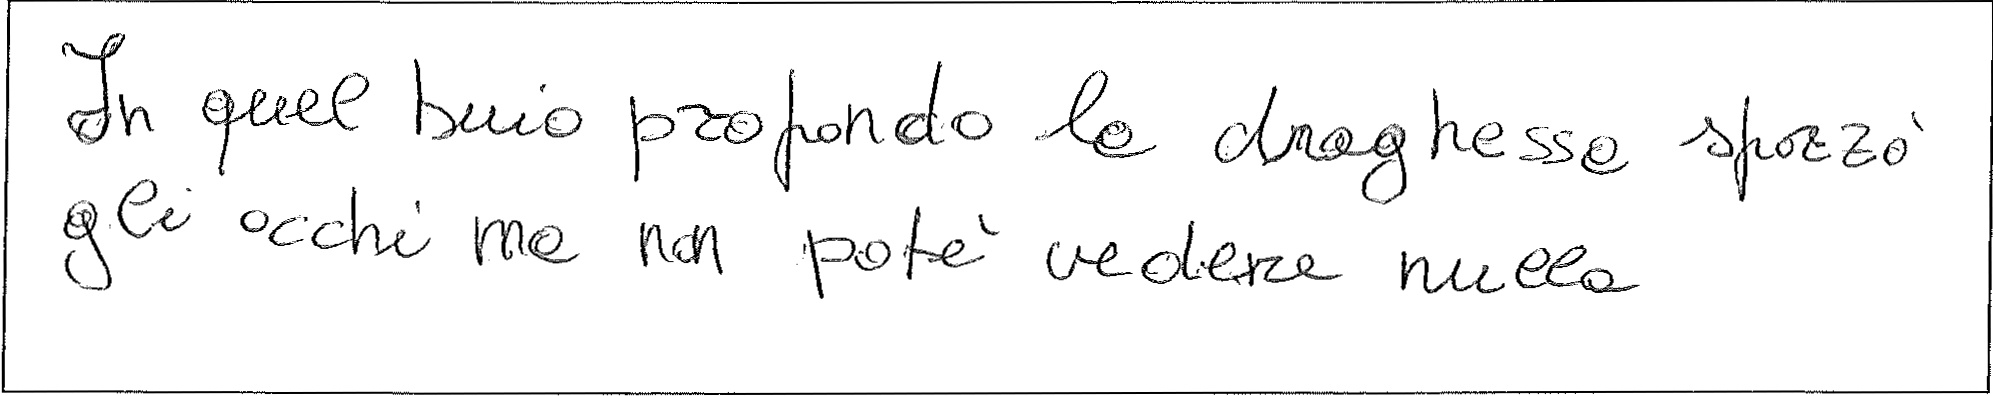 In quel buio profondo la draghessa spazzò
gli occhi ma non potè vedere nulla